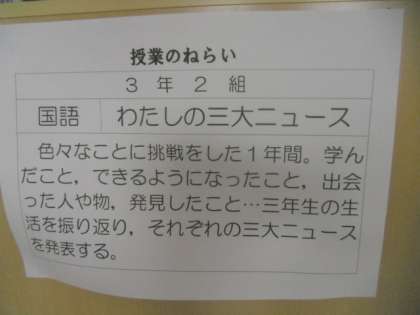 授業のねらい
3年2組
国語 わたしの三大ニュース
色々なことに挑戦をした1年間。学ん
だこと，できるようになったこと，出会
った人や物，発見したこと…三年生の生
活を振り返り，それぞれの三大ニュース
を発表する。